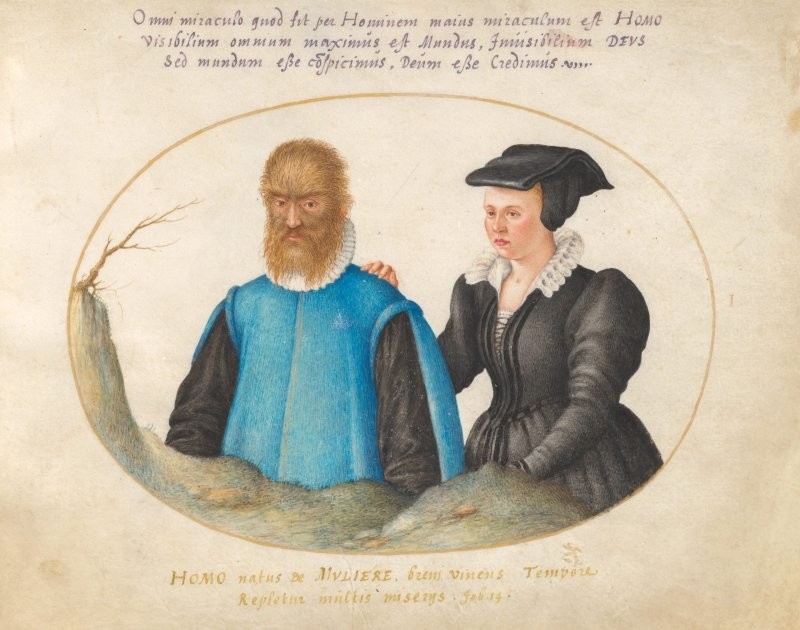 Omni miraculo quod fit per Hominem maius miraculum est HOMO
Visibilium omnium maximus est Mundus, Inuisibilium DEVS
Sed mundum esse cōspicimus, Deum esse Credimus
I
HOMO natus de MVLIERE, breui viuens Tempore
Repletur multis miserijs. Job. 14.